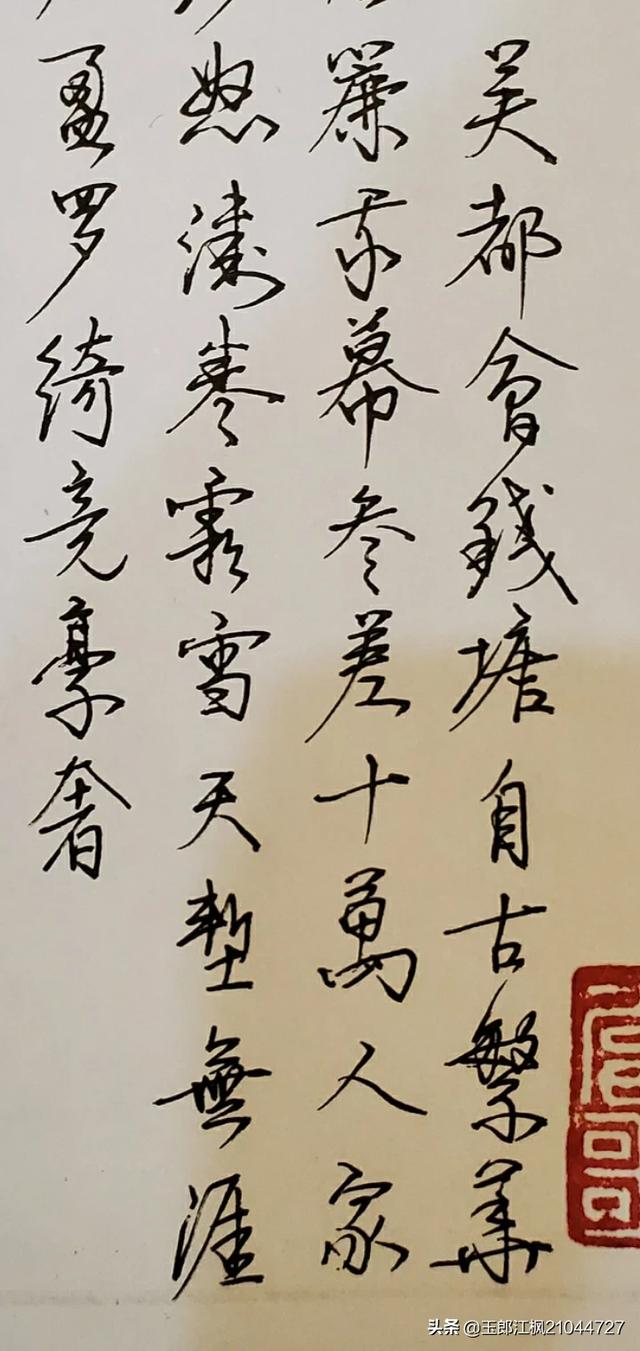 吴都會錢塘自古繁華
簾翠幕参差十萬人家
怒濤卷霜雪天塹無涯
盈罗綺竞豪奢
头条 @玉郎江枫21044727